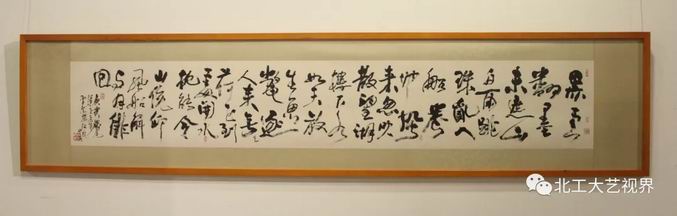 黑云
翻墨
未遮山
白雨跳
珠亂入
船卷
地風
来忽吹
散望湖
楼下水
如天放
生魚
鳖逐
人来無主
荷花到
處開水
枕能令
山俯仰
風船解
与月徘
徊
北工大艺视界